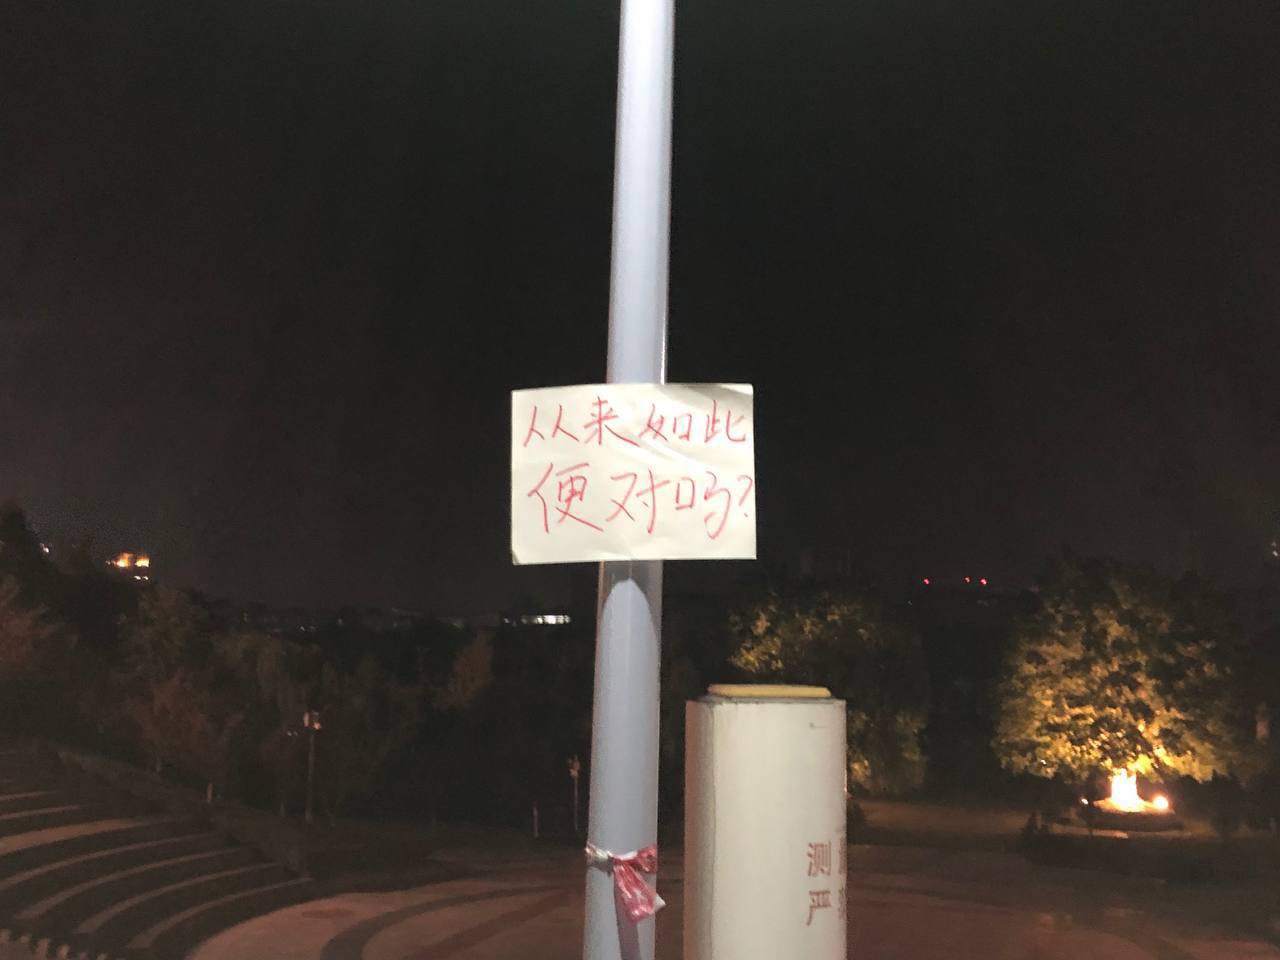 从来如此
便对吗?
测
严